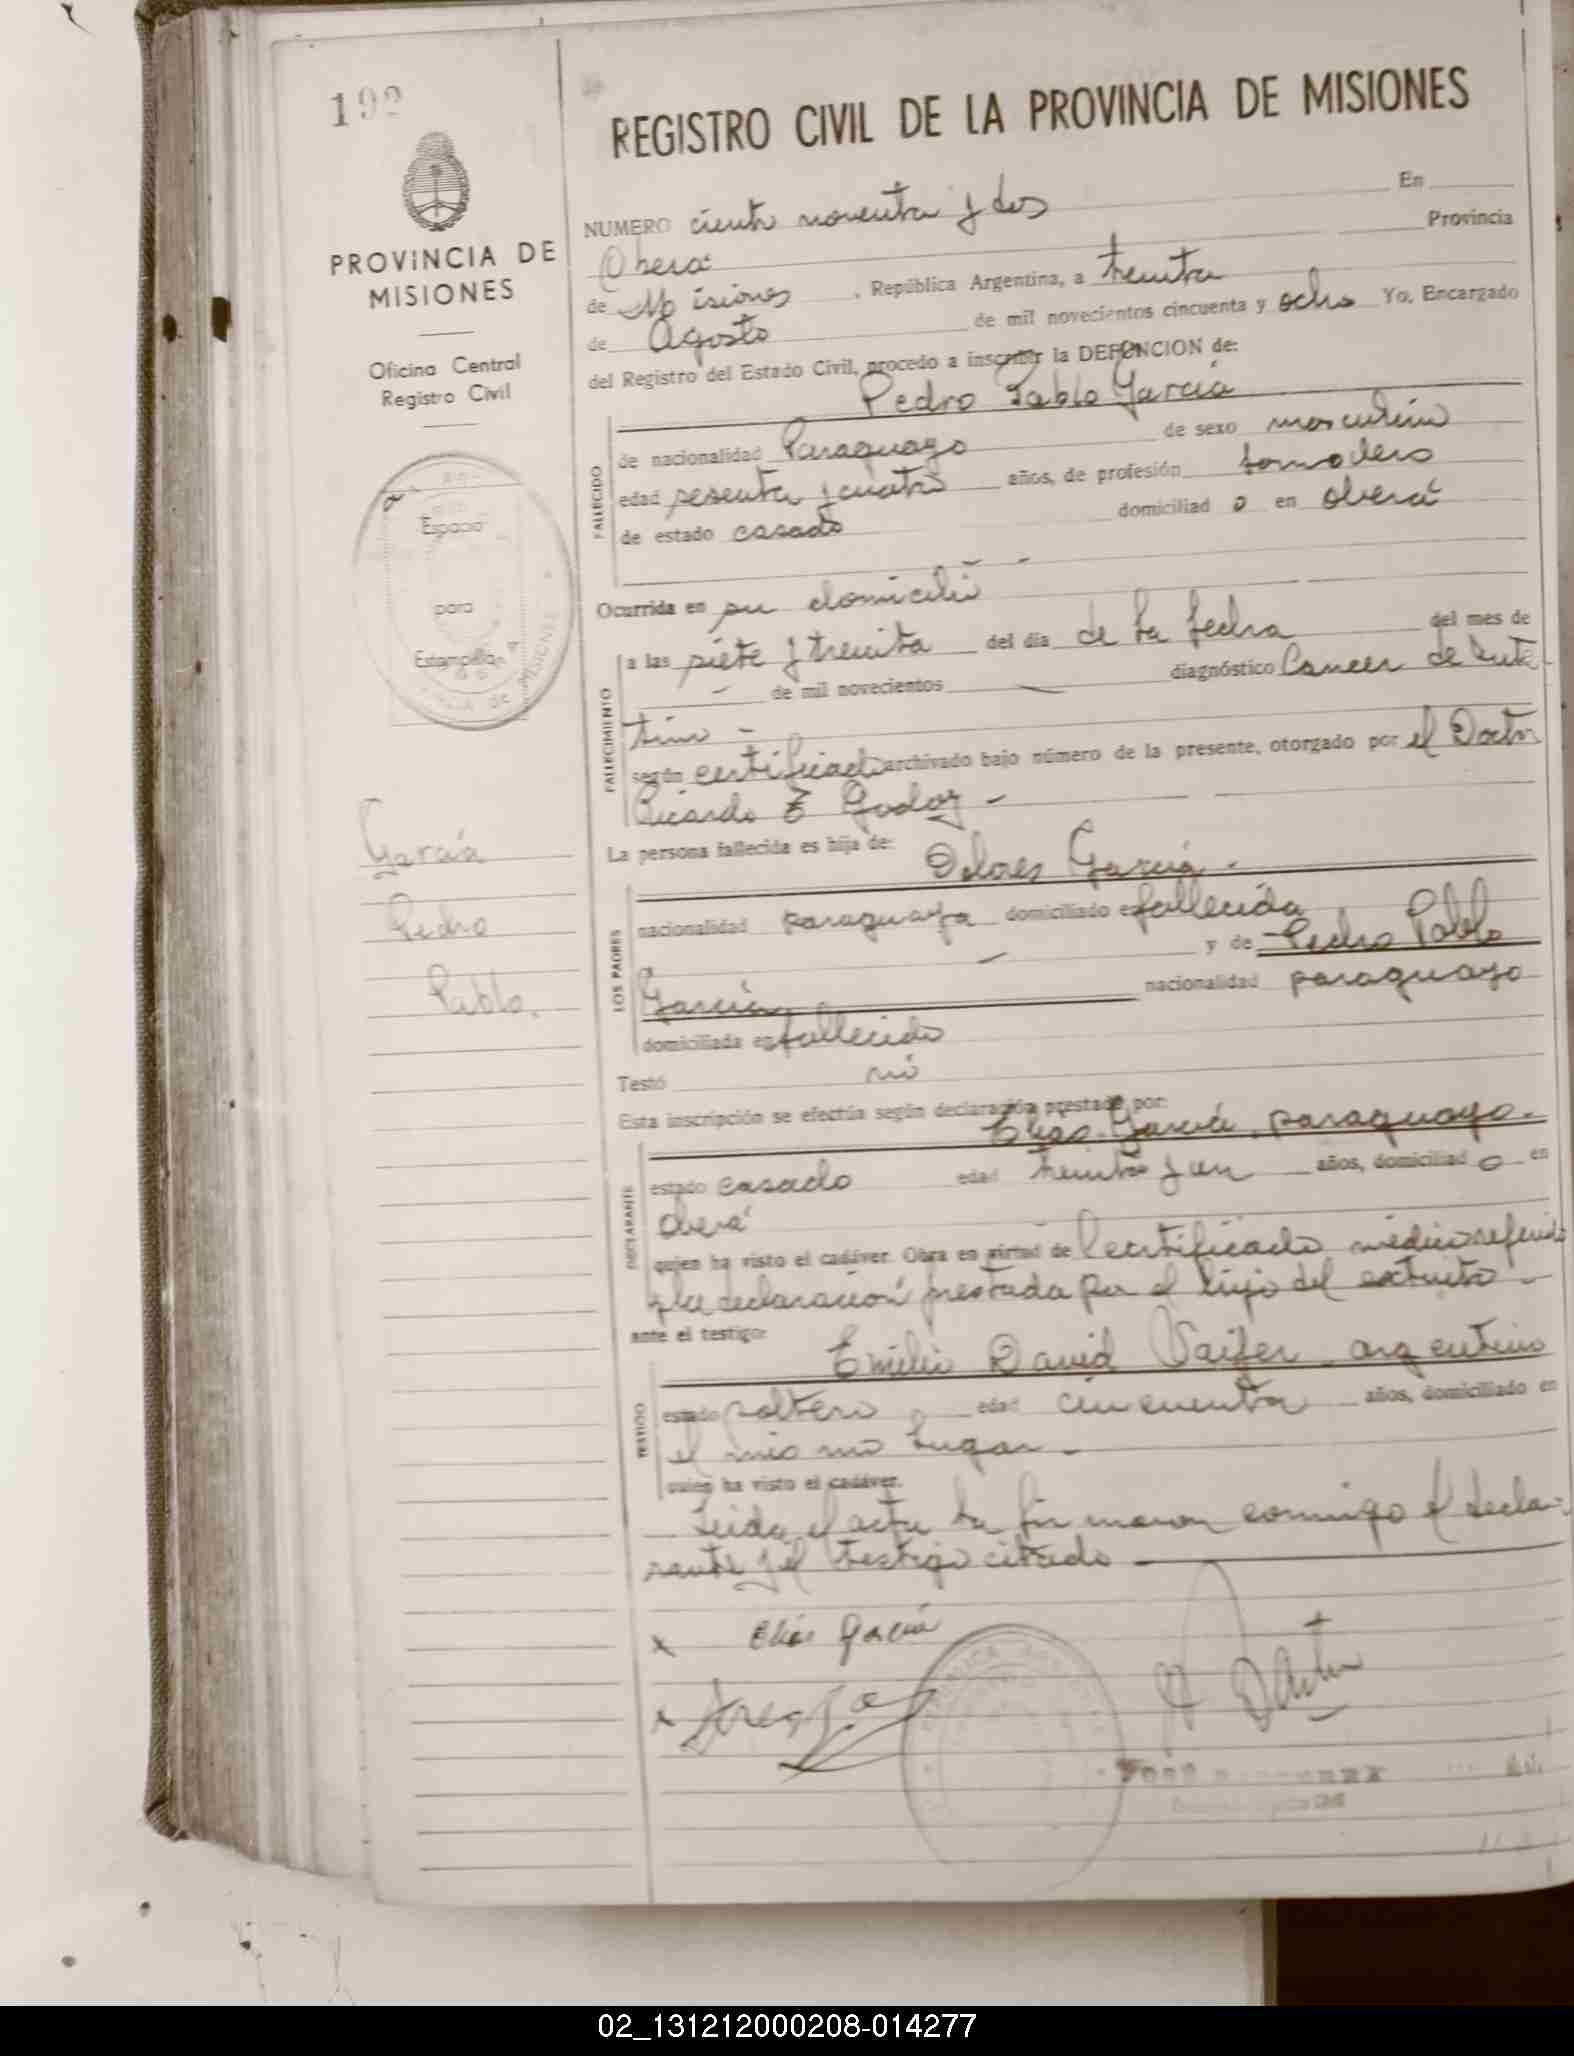 192
PROVINCIA DE
MISIONES
Oficina Central
Registro Civil
Espacio
para
Estampilla
García
Pedro
Pablo.
REGISTRO CIVIL DE LA PROVINCIA DE MISIONES
NUMERO ciento noventa y dos En
Oberá Provincia
de Misiones, República Argentina, a treinta
de Agosto de mil novecientos cincuenta y ocho Yo, Encargado
del Registro del Estado Civil, procedo a inscribir la DEFUNCION de:
Pedro Pablo García
FALLECIDO
de nacionalidad Paraguayo de sexo masculino
edad sesenta y cuatro años, de profesión
de estado casado domiciliado en oberá
Ocurrida en su domicilio -
FALLECIMIENTO
a las siete y treinta del día de la fecha del mes de
- de mil novecientos - diagnóstico Cancer de Inte
tino -
según certificado archivado bajo número de la presente, otorgado por el Doctor
Ricardo E Godoy -
La persona fallecida es hija de:
Dolores García -
LOS PADRES
nacionalidad paraguaya domiciliado en fallecida
- y de Pedro Pablo
García nacionalidad paraguayo
domiciliada en fallecido
Testó no
Esta inscripción se efectúa según declaración prestada por:
Elías García, paraguayo.
DECLARANTE
estado casado edad treinta y un años, domiciliado en
Oberá
quien ha visto el cadáver. Obra en virtud de Certificado médico referido
y la declaración prestada por el hijo del extinto -
ante el testigo:
Emilio David argentino
TESTIGO
estado soltero edad cincuenta años, domiciliado en
el mismo lugar -
quien ha visto el cadáver.
Leida el acta la firmaron conmigo el decla-
rante y el testigo citado
x Elías García
x
02_131212000208-014277